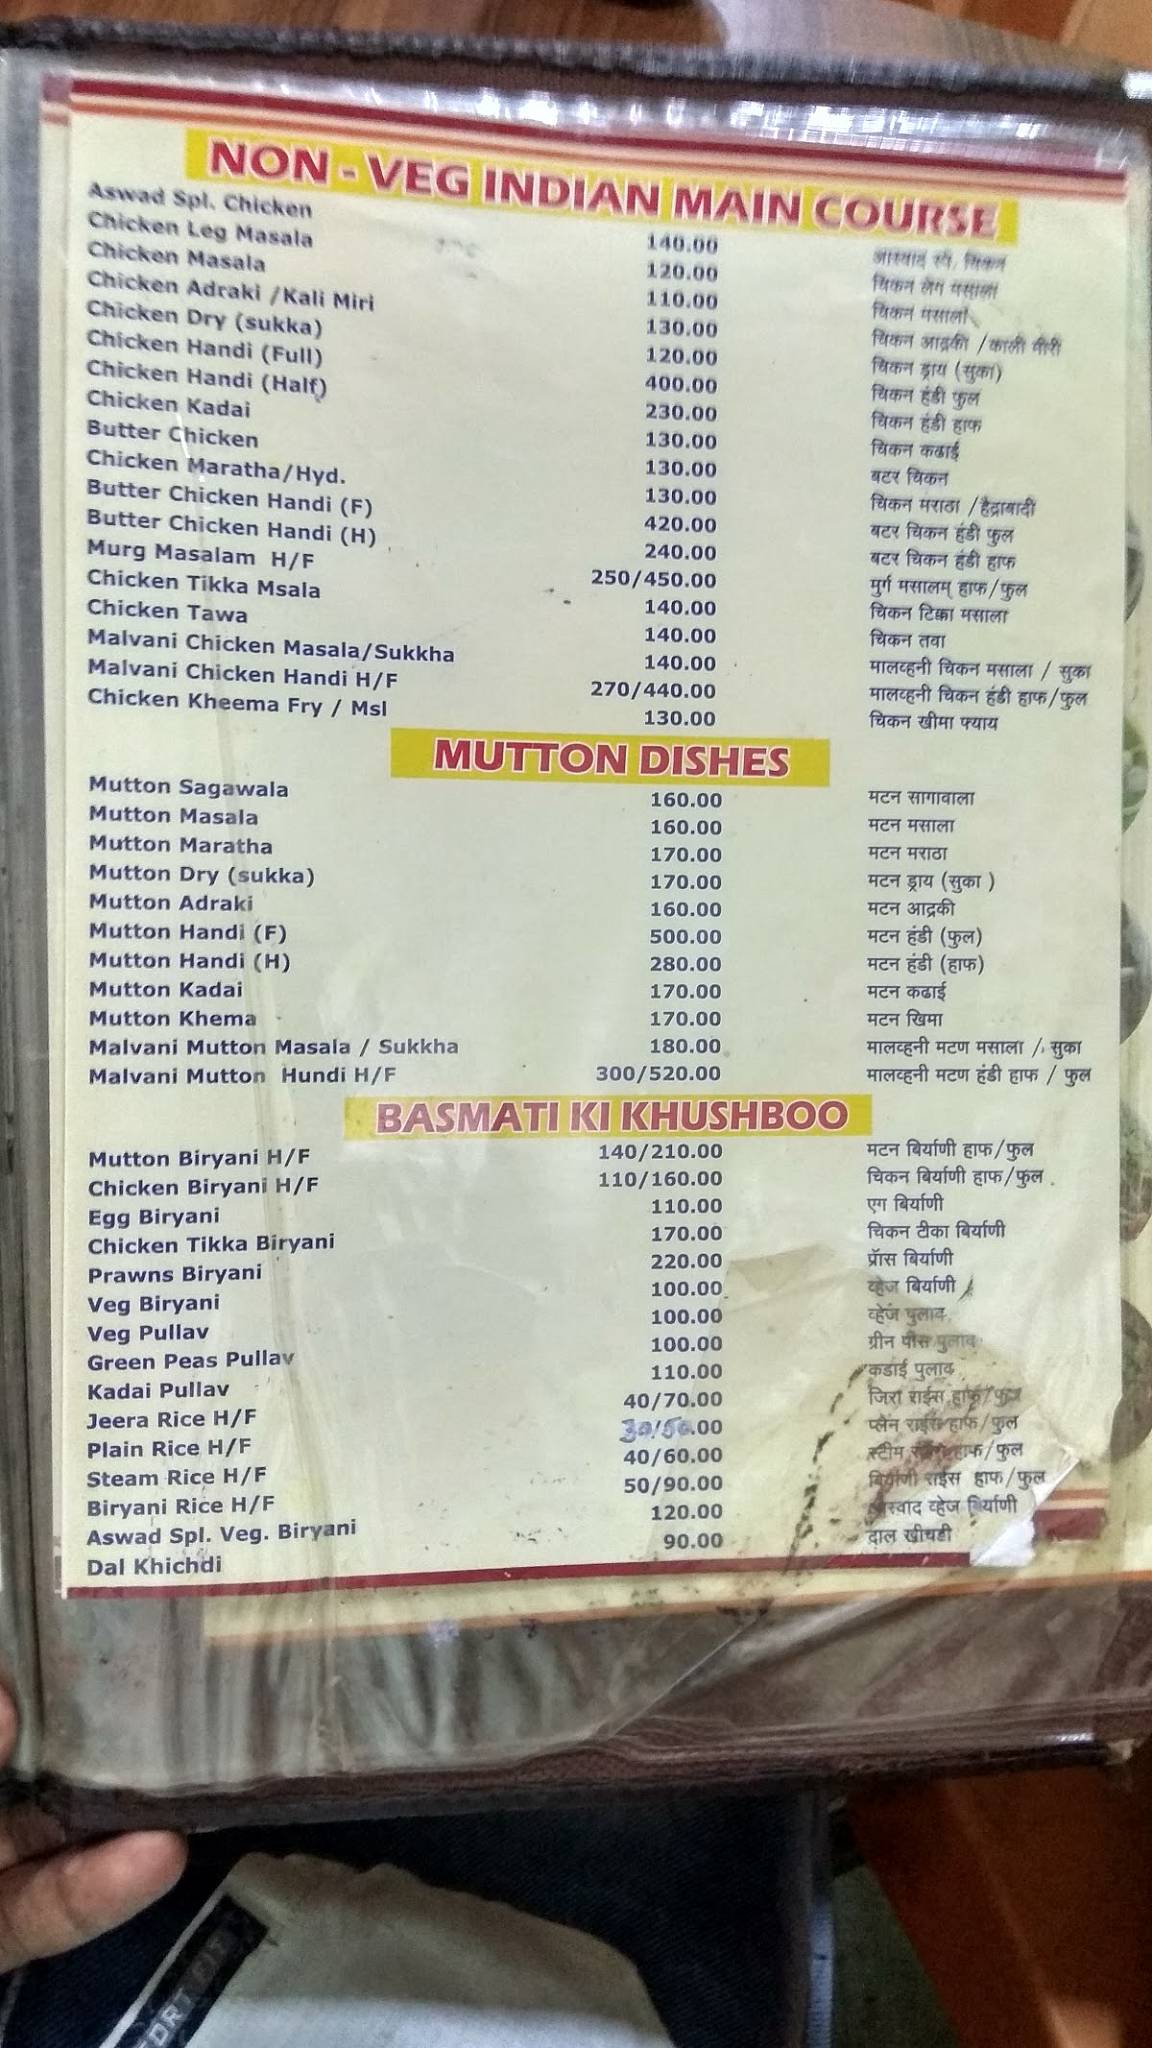 NON - VEG INDIAN MAIN COURSE
Aswad Spl. Chicken 140.00 आस्वाद स्पे. चिकन
Chicken Leg Masala 120.00 चिकन लेग मसाला
Chicken Masala 110.00 चिकन मसाला
Chicken Adraki /Kali Miri 130.00 चिकन आद्रकी /काली मीरी
Chicken Dry (sukka) 120.00 चिकन ड्राय (सुका)
Chicken Handi (Full) 400.00 चिकन हंडी फुल
Chicken Handi (Half) 230.00 चिकन हंडी हाफ
Chicken Kadai 130.00 चिकन कढाई
Butter Chicken 130.00 बटर चिकन
Chicken Maratha/Hyd. 130.00 चिकन मराठा /हैद्राबादी
Butter Chicken Handi (F) 420.00 बटर चिकन हंडी फुल
Butter Chicken Handi (H) 240.00 बटर चिकन हंडी हाफ
Murg Masalam H/F 250/450.00 मुर्ग मसालम् हाफ/फुल
Chicken Tikka Msala 140.00 चिकन टिक्का मसाला
Chicken Tawa 140.00 चिकन तवा
Malvani Chicken Masala/Sukkha 140.00 मालव्हनी चिकन मसाला / सुका
Malvani Chicken Handi H/F 270/440.00 मालव्हनी चिकन हंडी हाफ/फुल
Chicken Kheema Fry / Msl 130.00 चिकन खीमा फ्याय
MUTTON DISHES
Mutton Sagawala 160.00 मटन सागावाला
Mutton Masala 160.00 मटन मसाला
Mutton Maratha 170.00 मटन मराठा
Mutton Dry (sukka) 170.00 मटन ड्राय (सुका )
Mutton Adraki 160.00 मटन आद्रकी
Mutton Handi (F) 500.00 मटन हंडी (फुल)
Mutton Handi (H) 280.00 मटन हंडी (हाफ)
Mutton Kadai 170.00 मटन कढाई
Mutton Khema 170.00 मटन खिमा
Malvani Mutton Masala / Sukkha 180.00 मालव्हनी मटण मसाला / सुका
Malvani Mutton Hundi H/F 300/520.00 मालव्हनी मटण हंडी हाफ / फुल
BASMATI KI KHUSHBOO
Mutton Biryani H/F 140/210.00 मटन बिर्याणी हाफ/फुल
Chicken Biryani H/F 110/160.00 चिकन बिर्याणी हाफ/फुल
Egg Biryani 110.00 एग बिर्याणी
Chicken Tikka Biryani 170.00 चिकन टीका बिर्याणी
Prawns Biryani 220.00 प्रॅास बिर्याणी
Veg Biryani 100.00 व्हेज बिर्याणी
Veg Pullav 100.00 व्हेज पुलाव
Green Peas Pullav 100.00 ग्रीन पीस पुलाव
Kadai Pullav 110.00 कडाई पुलाव
Jeera Rice H/F 40/70.00 जिरा राईस हाफ/फुल
Plain Rice H/F 30/50.00 प्लेन राईस हाफ/फुल
Steam Rice H/F 40/60.00 स्टीम राईस हाफ/फुल
Biryani Rice H/F 50/90.00 बिर्याणी राईस हाफ/फुल
Aswad Spl. Veg. Biryani 120.00 आस्वाद व्हेज बिर्याणी
Dal Khichdi 90.00 दाल खीचडी